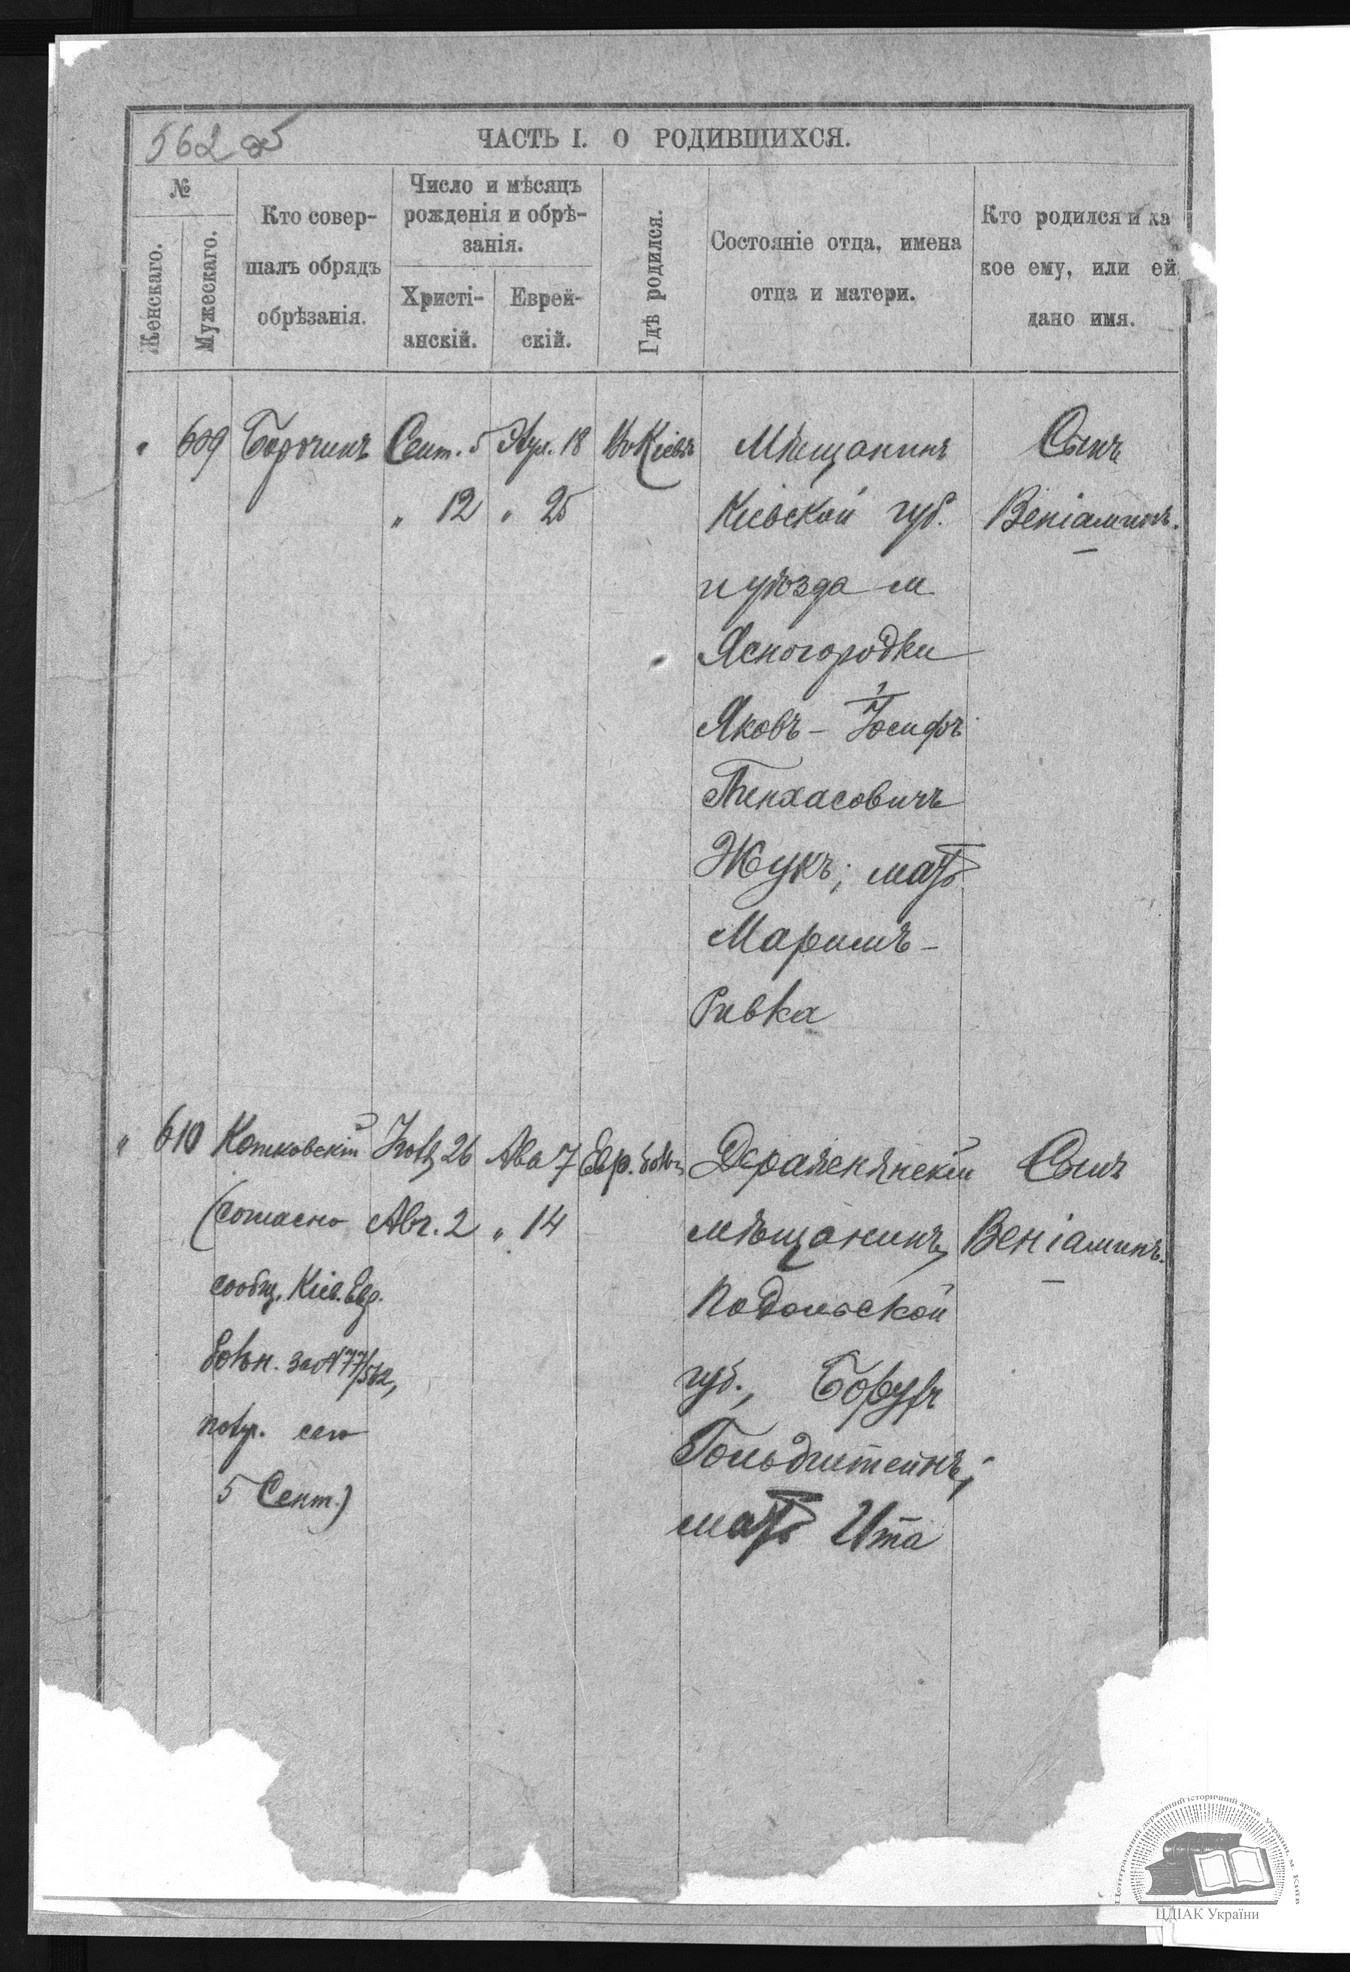 562 об
ЧАСТЬ I. О РОДИВШИХСЯ.
№
Женскаго.
Мужескаго.
Кто совер-
шалъ обрядъ
обрѣзанія.
Число и мѣсяцъ
рожденія и обрѣ-
занія.
Христі-
анскій.
Еврей-
скій.
Гдѣ родился.
Состояніе отца, имена
отца и матери.
Кто родился и ка
кое ему, или ей
дано имя.
" 609 Сент. 5 Элул. 18 Въ Кіевѣ Мѣщанинъ Сынъ
" 12 " 25 Кіевской губ. Веніаминъ.
и уѣзда м.
Ясногородки
Яковъ-Іосифъ
Пинхасовичъ
Жукъ; мать
Маріимъ-
Ривка
" 610 Котковскій 26 Ава 7 Евр. больн. Деражнянскій Сынъ
(согласно Авг. 2 " 14 мѣщанинъ, Веніаминъ.
сообщ. Кіев. Евр. Подольской
больн. за № 77/562, губ., Борухъ
получ. сего Гольдштейнъ;
5 Сент.) мать Ита
Центральний державний історичний архів України, м. Київ
ЦДІАК України